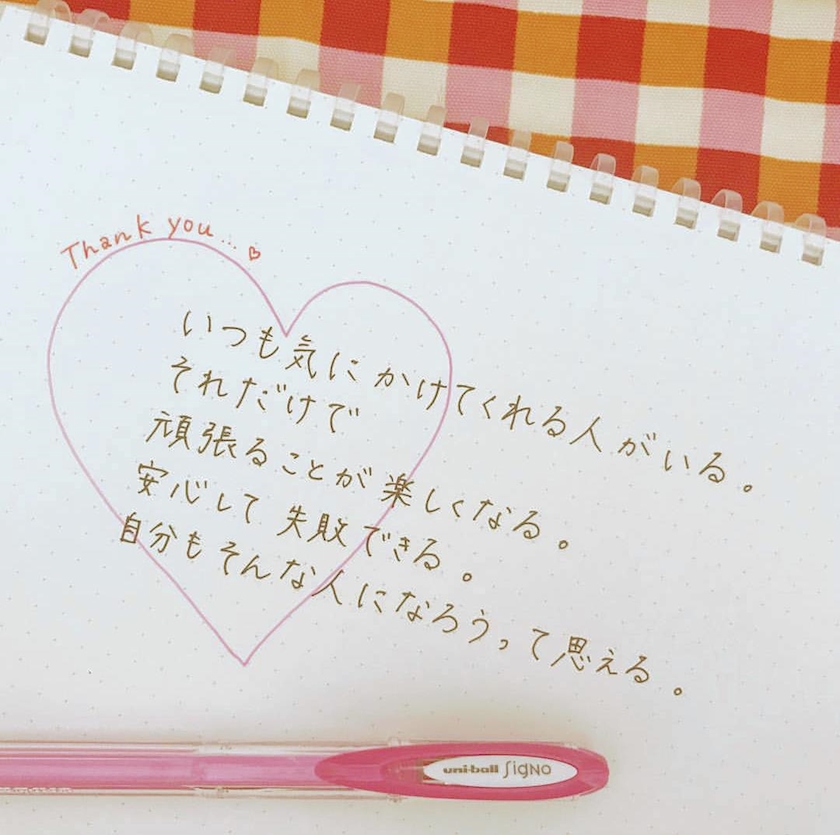 Thank you...♡
いつも気にかけてくれる人がいる。
それだけで
頑張ることが楽しくなる。
安心して失敗できる。
自分もそんな人になろうって思える。
uni-ball SigNO